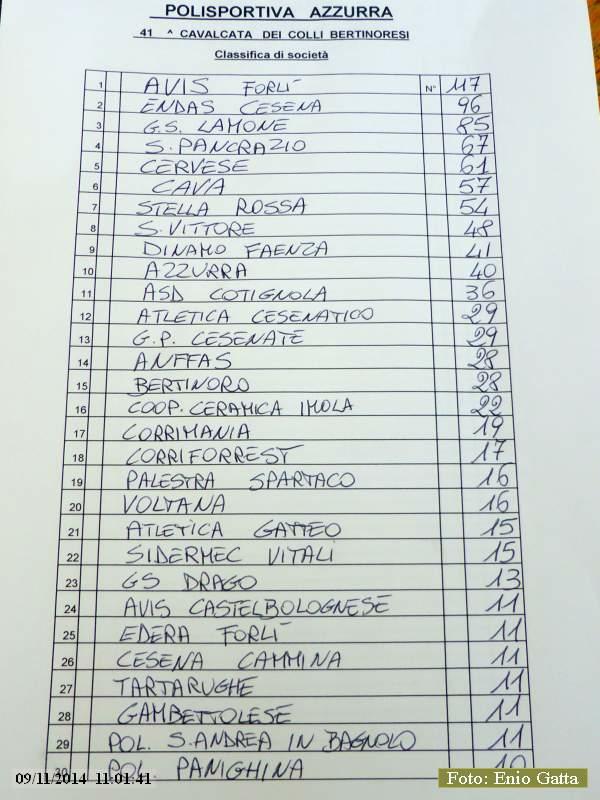 POLISPORTIVA AZZURRA
41 ^ CAVALCATA DEI COLLI BERTINORESI
Classifica di società
1 AVIS FORLÌ N° 117
2 ENDAS CESENA 96
3 G.S. LAMONE 85
4 S. PANCRAZIO 67
5 CERVESE 61
6 CAVA 57
7 STELLA ROSSA 54
8 S. VITTORE 48
9 DINAMO FAENZA 41
10 AZZURRA 40
11 ASD COTIGNOLA 36
12 ATLETICA CESENATICO 29
13 G.P. CESENATE 29
14 ANFFAS 28
15 BERTINORO 28
16 COOP. CERAMICA IMOLA 22
17 CORRIMANIA 19
18 CORRIFORREST 17
19 PALESTRA SPARTACO 16
20 VOLTANA 16
21 ATLETICA GATTEO 15
22 SIDERMEC VITALI 15
23 GS DRAGO 13
24 AVIS CASTELBOLOGNESE 11
25 EDERA FORLÌ 11
26 CESENA CAMMINA 11
27 TARTARUGHE 11
28 GAMBETTOLESE 11
29 POL. S. ANDREA IN BAGNOLO 11
30 POL. PANIGHINA 10
09/11/2014 11:01:41
Foto: Enio Gatta